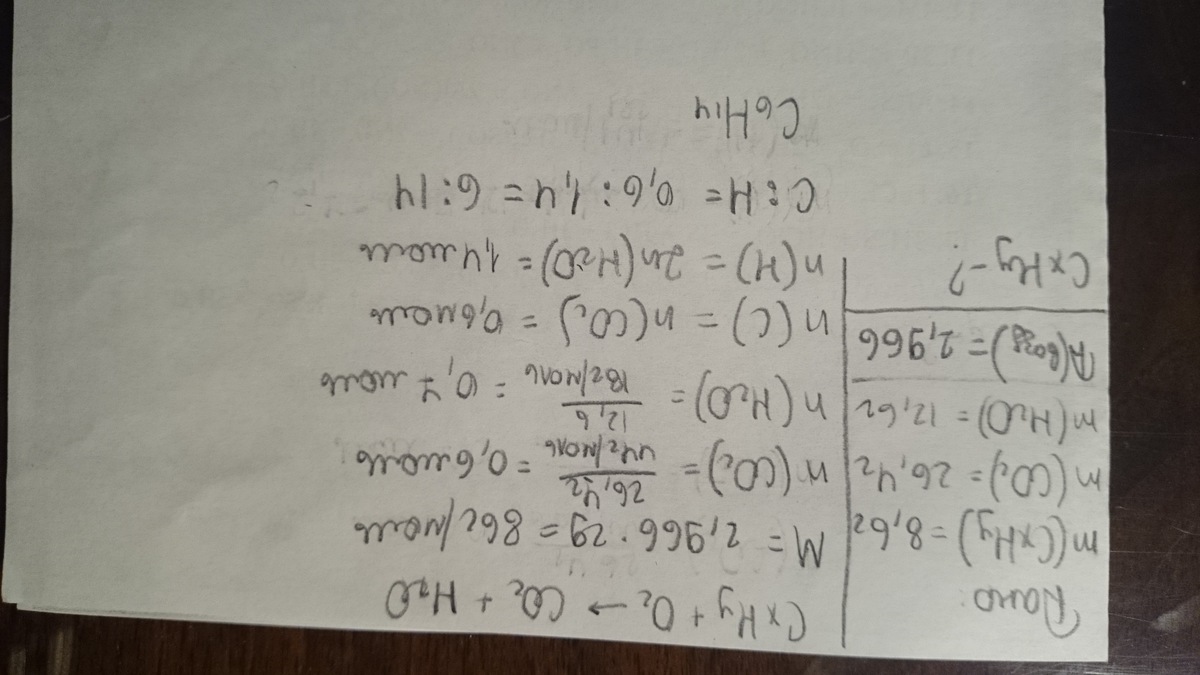 Дано:
m(CxHy) = 8,6г
m(CO₂) = 26,4г
m(H₂O) = 12,6г
Д(возд) = 2,966
CxHy - ?
CxHy + O₂ → CO₂ + H₂O
M = 2,966 · 29 = 86г/моль
n(CO₂) = 26,4г / 44г/моль = 0,6моль
n(H₂O) = 12,6 / 18г/моль = 0,7 моль
n(C) = n(CO₂) = 0,6моль
n(H) = 2n(H₂O) = 1,4моль
C : H = 0,6 : 1,4 = 6 : 14
C6H14